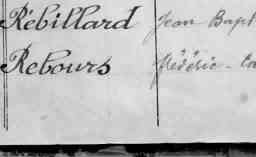 Rébillard Jean Bapt
Rebours Frédéric -